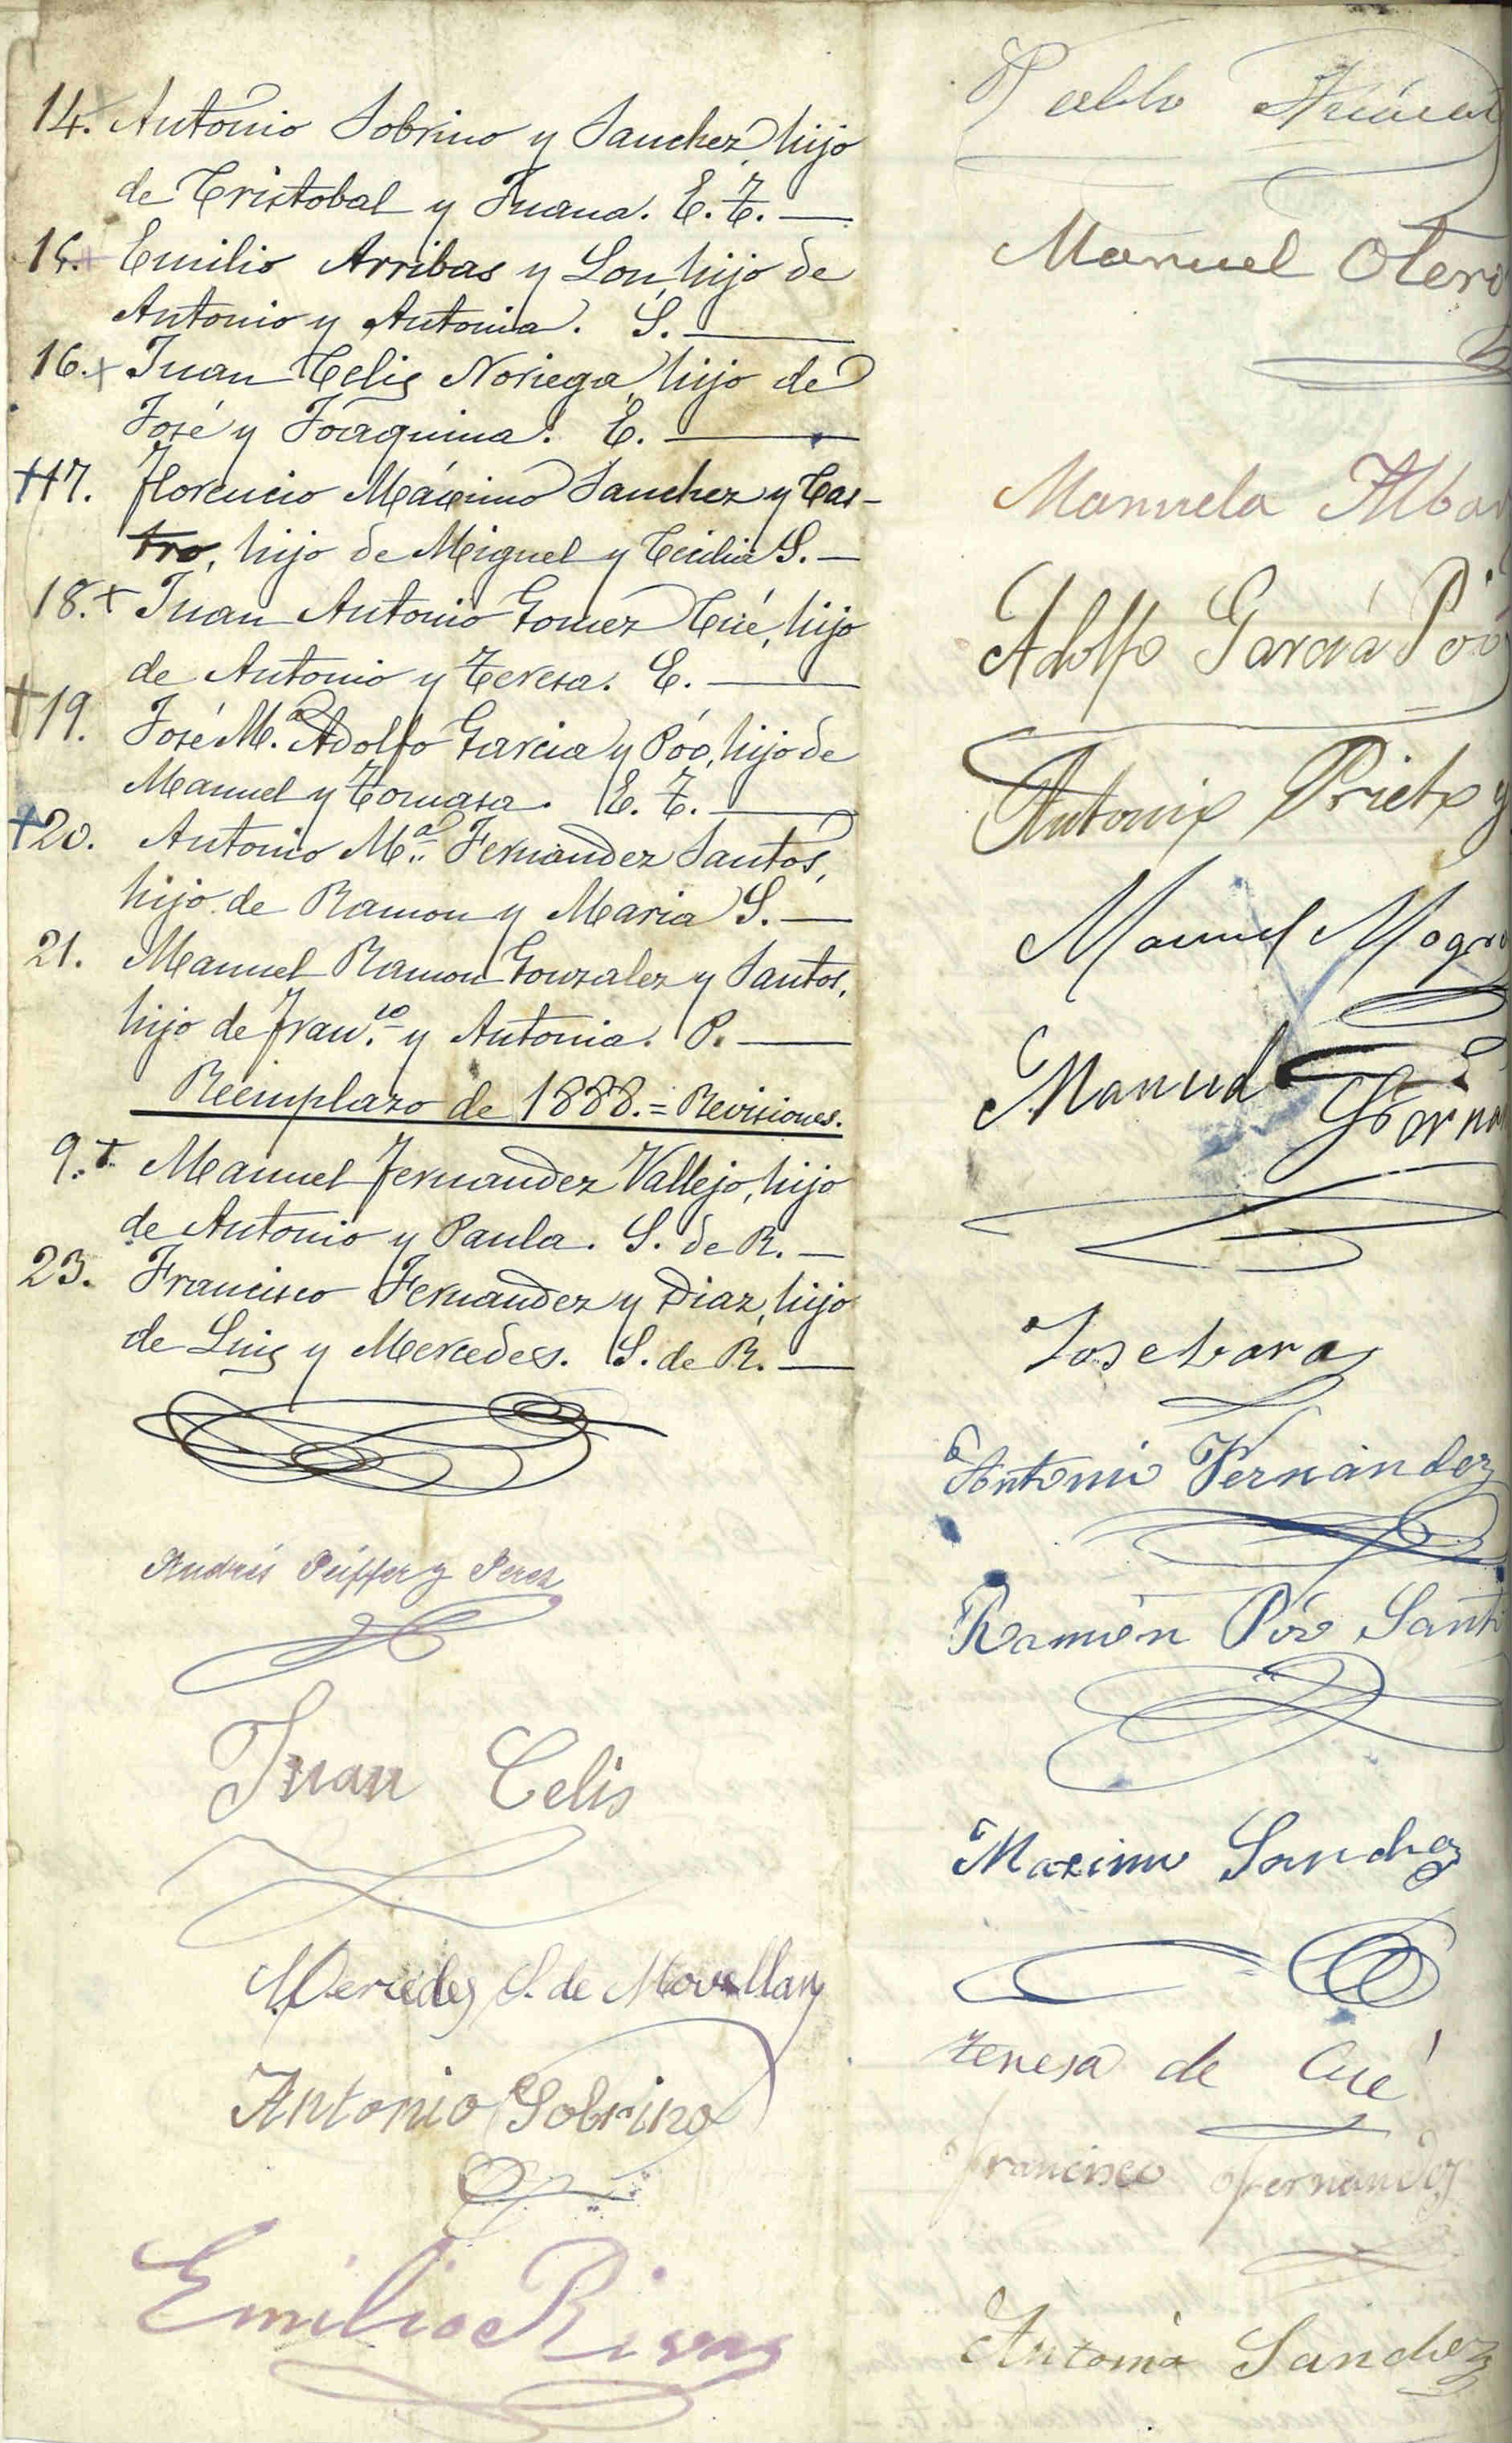 14. Antonio Sobrino y Sanchez, hijo
de Cristobal y Juana. E. T. —
15. Emilio Arribas y Son, hijo de
Antonio y Antonia. S. —
16. + Juan Celis Noriega, hijo de
José y Joaquina. E. —
+ 17. Florencio Máximo Sanchez y Cas-
tro, hijo de Miguel y Cecilia S. —
18. + Juan Antonio Gomez Cué, hijo
de Antonio y Teresa. E. —
+ 19. José M.ª Adolfo Garcia y Póo, hijo de
Manuel y Tomasa. E. T. —
+ 20. Antonio M.ª Fernandez Santos,
hijo de Ramon y Maria S. —
21. Manuel Ramon Gonzalez y Santos,
hijo de Fran.co y Antonia. P. —
Reemplazo de 1888. = Revisiones.
9. + Manuel Fernandez Vallejo, hijo
de Antonio y Paula. S. de R. —
23. Francisco Fernandez y Diaz, hijo
de Luis y Mercedes. S. de R. —
Andrés Peiffer y Perez
Juan Celis
Mercedes S. de Movellan
Antonio Sobrino
Emilio Rivas
Pablo
Manuel Otero
Manuela
Adolfo García Póo
Antonio Prieto y
Manuel
Manuel
Jose
Antonio Fernández
Ramón Póo
Maximo Sanchez
Teresa de Cué
Francisco Fernandez
Antonia Sanchez